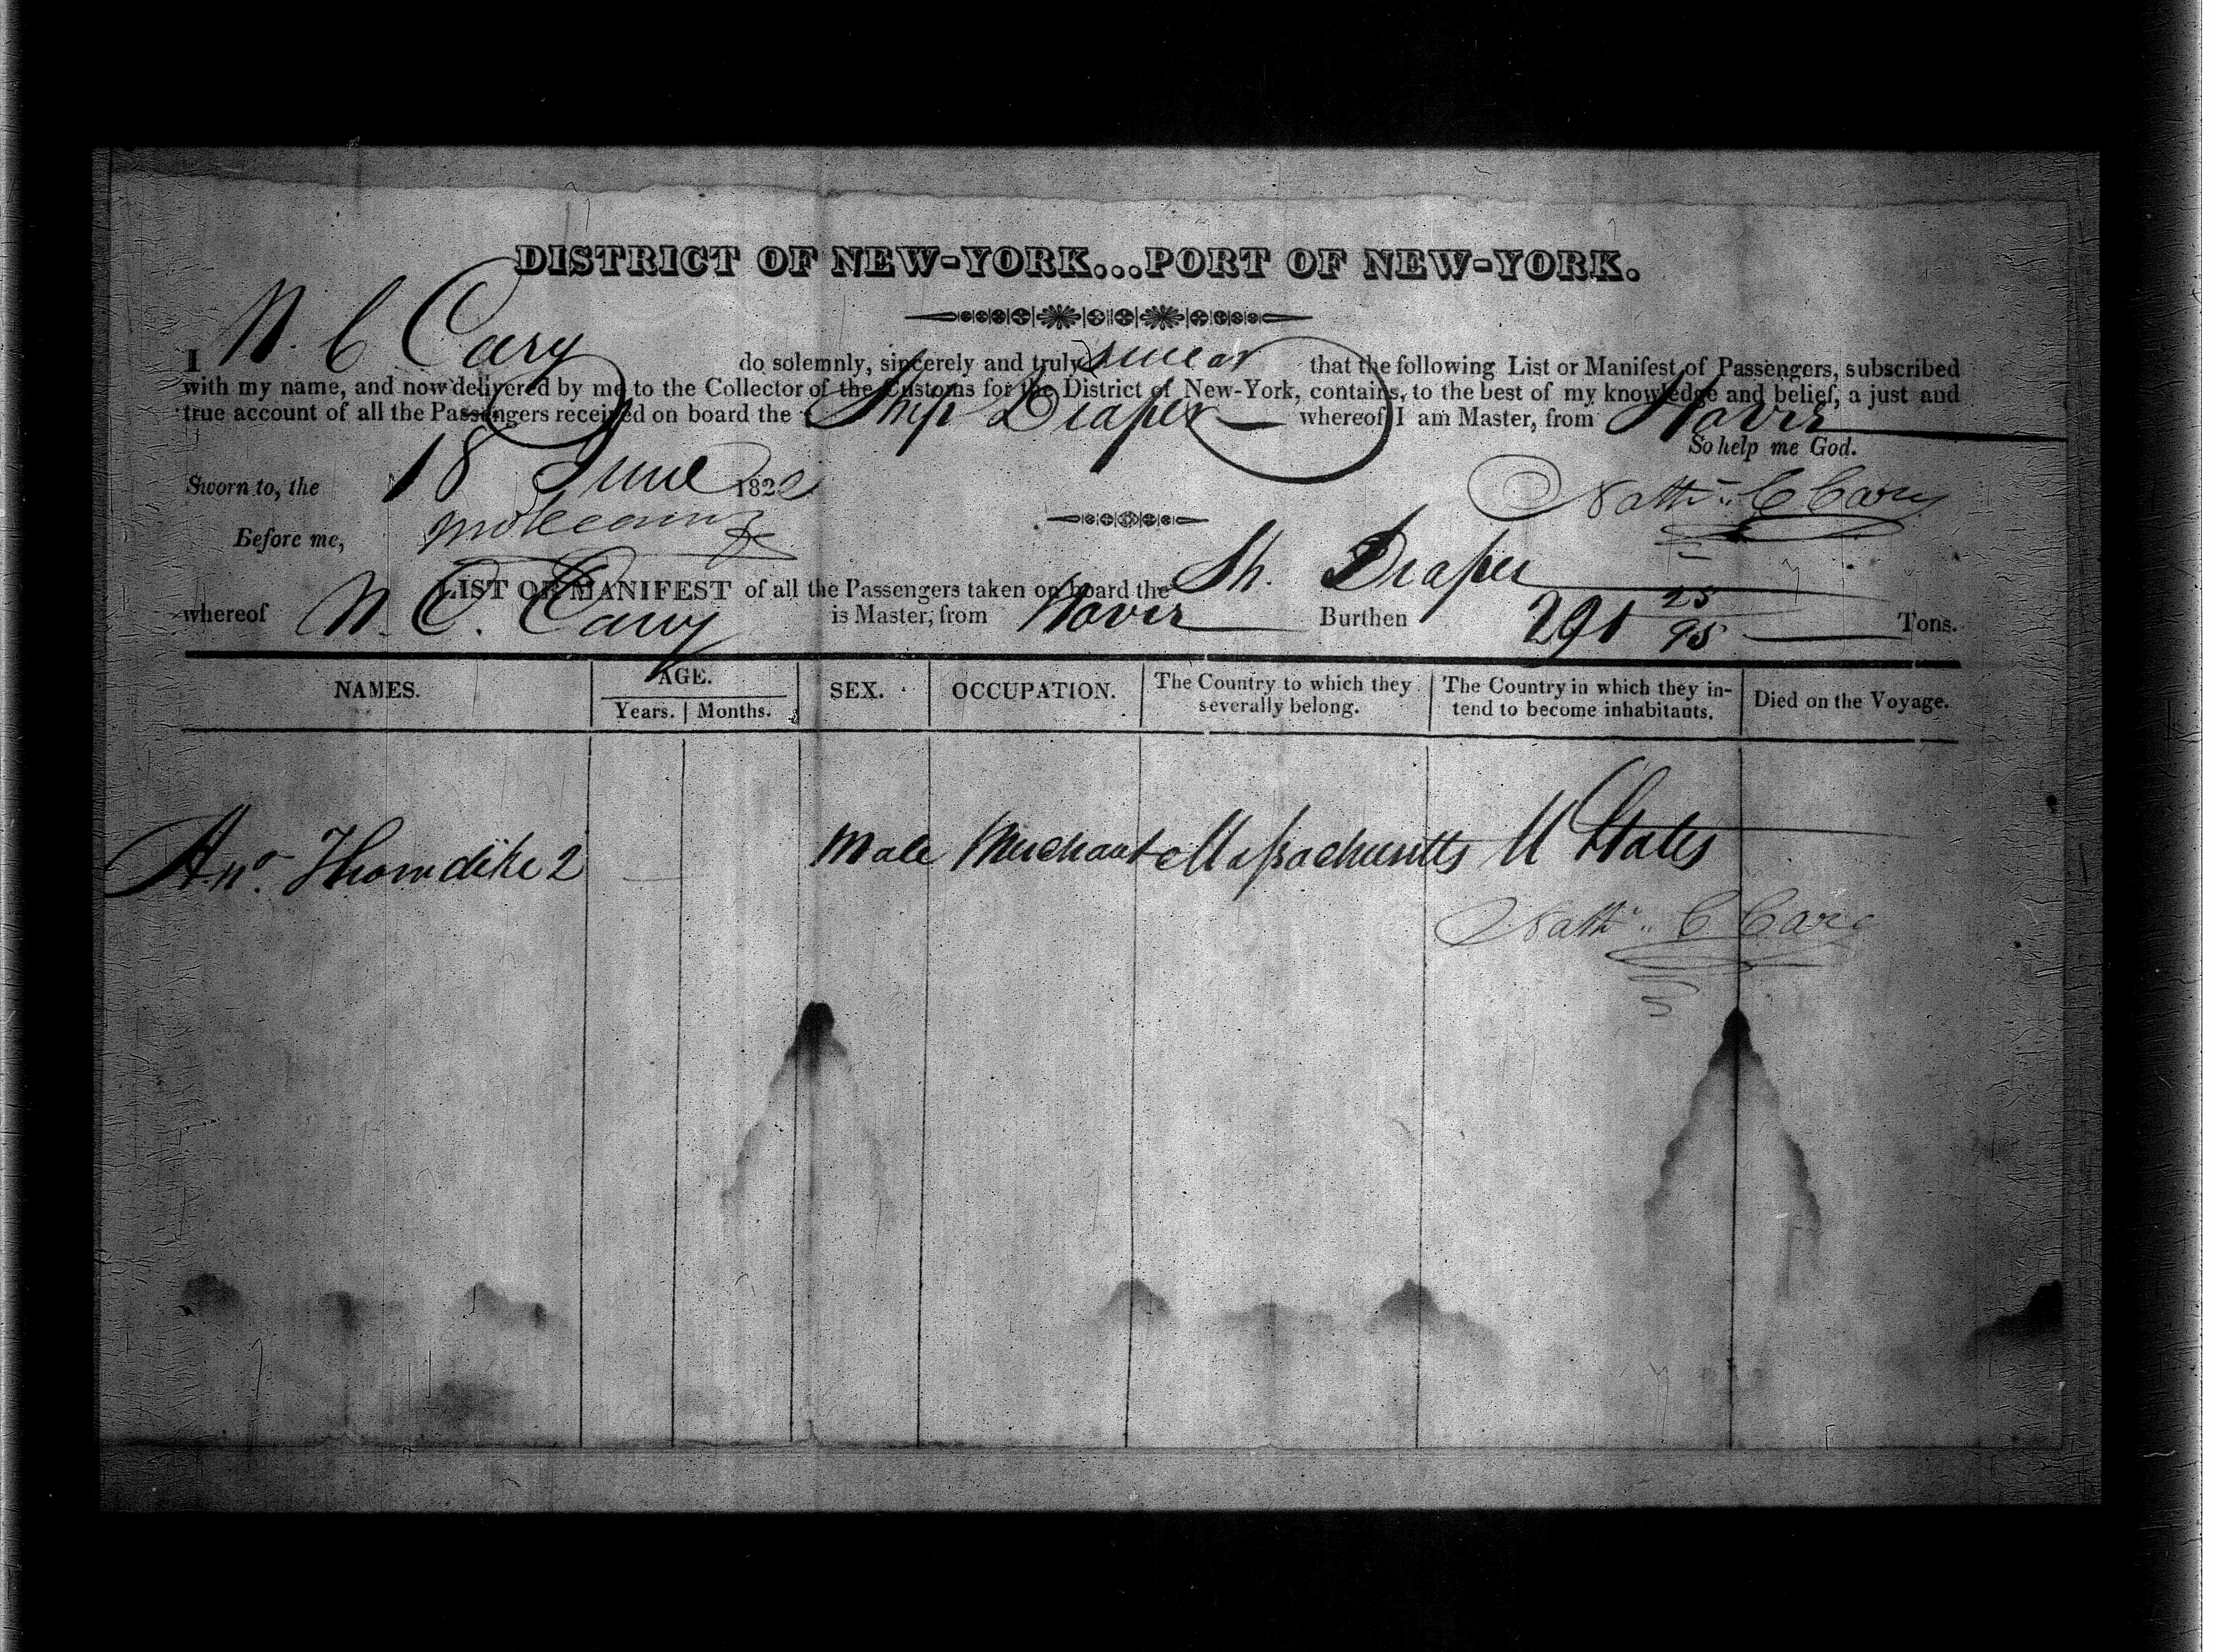 DISTRICT OF NEW-YORK...PORT OF NEW-YORK.
I N. C Cary do solemnly, sincerely and truly swear that the following List or Manifest of Passengers, subscribed
with my name, and now delivered by me to the Collector of the Customs for the District of New-York, contains, to the best of my knowledge and belief, a just and
true account of all the Passengers received on board the Ship Draper whereof I am Master, from Havre
So help me God.
Sworn to, the 18 June 182
Nathl. C Cary
Before me,
LIST OR MANIFEST of all the Passengers taken on board the Sh. Draper
whereof N. C. Cary is Master, from Havre Burthen 291 25/95 Tons.
NAMES. AGE. SEX. OCCUPATION. The Country to which they severally belong. The Country in which they intend to become inhabitants. Died on the Voyage.
Years. Months.
Thorndike 2 Male Merchant Massachusetts U States
Nathl. C Cary